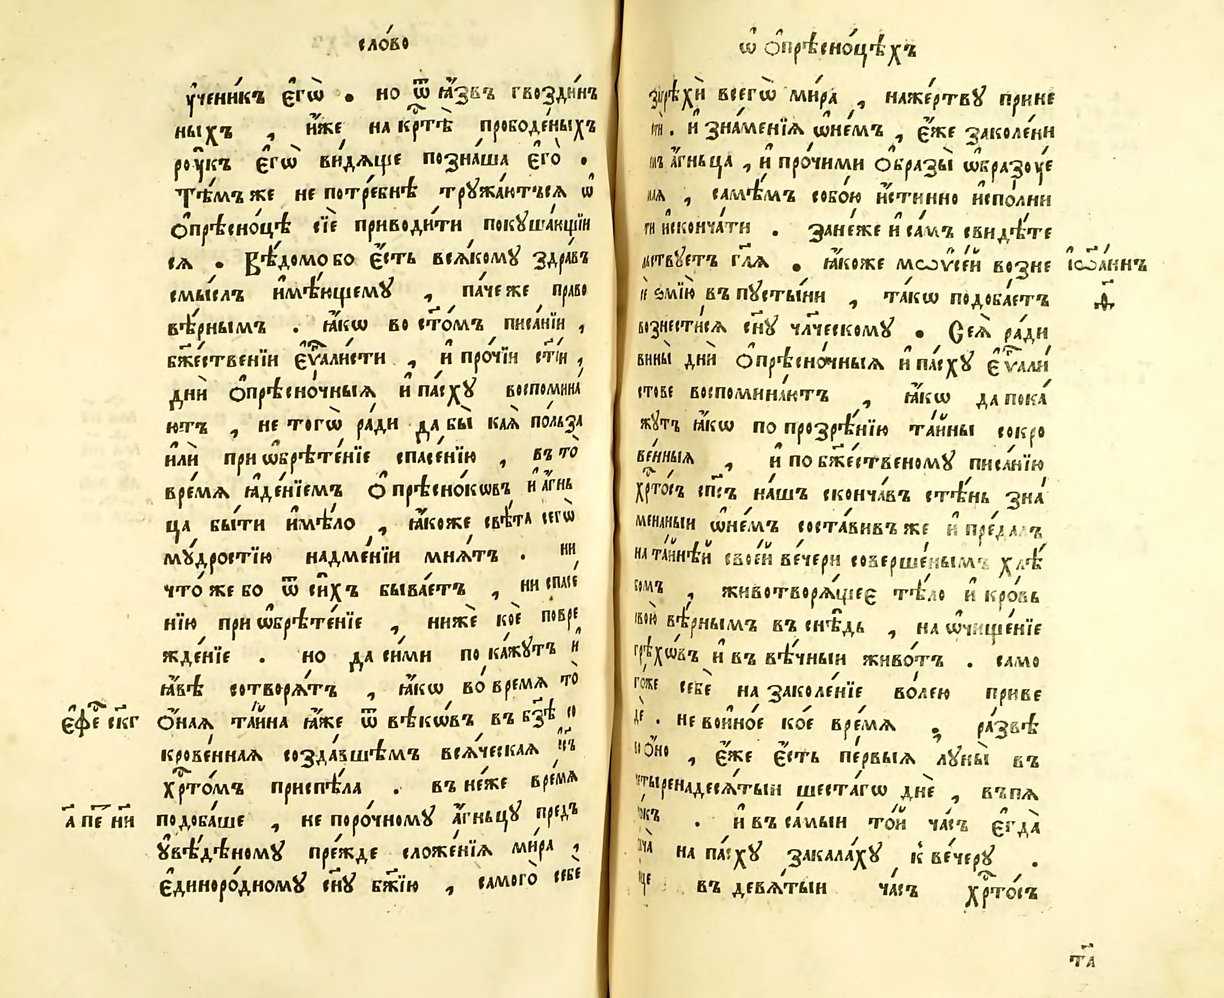 сло́во
ᲂу҆чени́къ є҆гѡ̀ . но ѿ ꙗ҆́звъ гвозди́н
ныхъ , и҆́же на крⷭ҇тѣ̀ прободе́ныхъ
рꙋ́къ є҆гѡ̀ ви́дѧще позна́ша є҆го̀ .
Тѣ́мъ же не потре́бнѣ трꙋжа́ютъсѧ ѡ҆
ѻ҆прѣсно́цѣ сїѐ приводи́ти покꙋша́ющїи
сѧ . Вѣ́домо бо є҆́сть всѧ́комꙋ здра́въ
смы́слъ и҆мѣ́ющемꙋ , па́че же право
вѣ́рнымъ . ꙗ҆́кѡ во ст҃о́мъ писа́нїи ,
бж҃е́ственїи є҆ѵⷢ҇али́сти , и҆ про́чїи ст҃і́и ,
дни̑ ѻ҆прѣсно́чныѧ и҆ па́схꙋ воспомина́
ютъ , не тогѡ̀ ра́ди да бы̀ ка́ѧ по́льза
и҆лѝ при ѡ҆брѣ́тенїе спасе́нїю , въ то̀
вре́мѧ ꙗ҆де́нїемъ ѻ҆прѣсно́кѡвъ и҆ а҆́гнь
ца бы́ти и҆мѣ́ло , ꙗ҆́коже свѣ́та сегѡ̀
мꙋ́дростїю надме́нїи мнѧ́тъ . ни
что́ же бо ѿ си́хъ быва́етъ , ни спасе́
нїю при ѡ҆брѣ́тенїе , нижѐ ко́е повре
жде́нїе . но да си́ми по ка́жꙋтъ и҆
ꙗ҆́вѣ сотворѧ́тъ , ꙗ҆́кѡ во вре́мѧ то̀
ѻ҆́наѧ та́йна ꙗ҆́же ѿ вѣ́кѡвъ въ бз҃ѣ со
є҆фе́ сн҃г
крове́ннаѧ созда́вшемъ всѧ́ческаѧ і҆с҃ъ
хрⷭ҇то́мъ приспѣ́ла . въ не́же вре́мѧ
подоба́ше , не поро́чномꙋ а҆́гньцꙋ предъ
а҃ пе҃ ни
ᲂу҆вѣ́дѣномꙋ пре́жде сложе́нїѧ ми́ра ,
є҆диноро́дномꙋ сн҃ꙋ бж҃їю , самого̀ себѐ
ѡ҆ ѻ҆прѣсно́цѣхъ
грѣхѝ всегѡ̀ ми́ра , на же́ртвꙋ прине
стѝ . и҆ зна́менїѧ ѡ҆ не́мъ , є҆́же заколе́ни
мъ а҆́гньца , и҆ про́чими ѻ҆́бразы ѡ҆бразꙋ́е
маѧ , самѣ́мъ собо́ю и҆́стинно и҆спо́лни
ти и҆ сконча́ти . зане́же и҆ са́мъ свидѣ́те
льствꙋетъ гл҃ѧ . ꙗ҆́коже мѡѷсе́й возне
і҆ѡа́ннъ
сѐ ѕмїю̀ въ пꙋсты́ни , та́кѡ подоба́етъ
д҃і
вознести́сѧ сн҃ꙋ чл҃ческомꙋ . Сеѧ̀ ра́ди
вины̀ дни̑ ѻ҆прѣсно́чныѧ и҆ па́схꙋ є҆ѵⷢ҇али́
стове воспомина́ютъ , ꙗ҆́кѡ да пока́
жꙋтъ ꙗ҆́кѡ по прозрѣ́нїю та́йны сокро
ве́нныѧ , и҆ по бж҃е́ственомꙋ писа́нїю
хрⷭ҇то́съ сп҃съ на́шъ сконча́въ стѣ́нь зна́
менаныи ѡ҆ не́мъ соста́вивъ же и҆ преда́лъ
на та́йнѣй свое́й ве́чери соверше́нымъ хлѣ́
бомъ , животворѧ́щее тѣ́ло и҆ кро́вь
свою̀ вѣ́рнымъ въ снѣ́дь , на ѡ҆чище́нїе
грѣхѡ́въ и҆ въ вѣ́чныи живо́тъ . само
го́же себѐ на заколе́нїе во́лею приве
дѐ . не во и҆но́е ко́е вре́мѧ , ра́звѣ
во ѻ҆́но , є҆́же є҆́сть пе́рвыѧ лꙋны̀ въ
четыренадесѧ́тыи шеста́гѡ днѐ , въ пѧ
то́къ . и҆ въ са́мыи то́й ча́съ є҆гда̀
ѻ҆ве́ча на па́схꙋ закала́хꙋ к ве́черꙋ .
є҆́ще въ девѧ́тыи ча́съ хрⷭ҇то́съ
т҃а